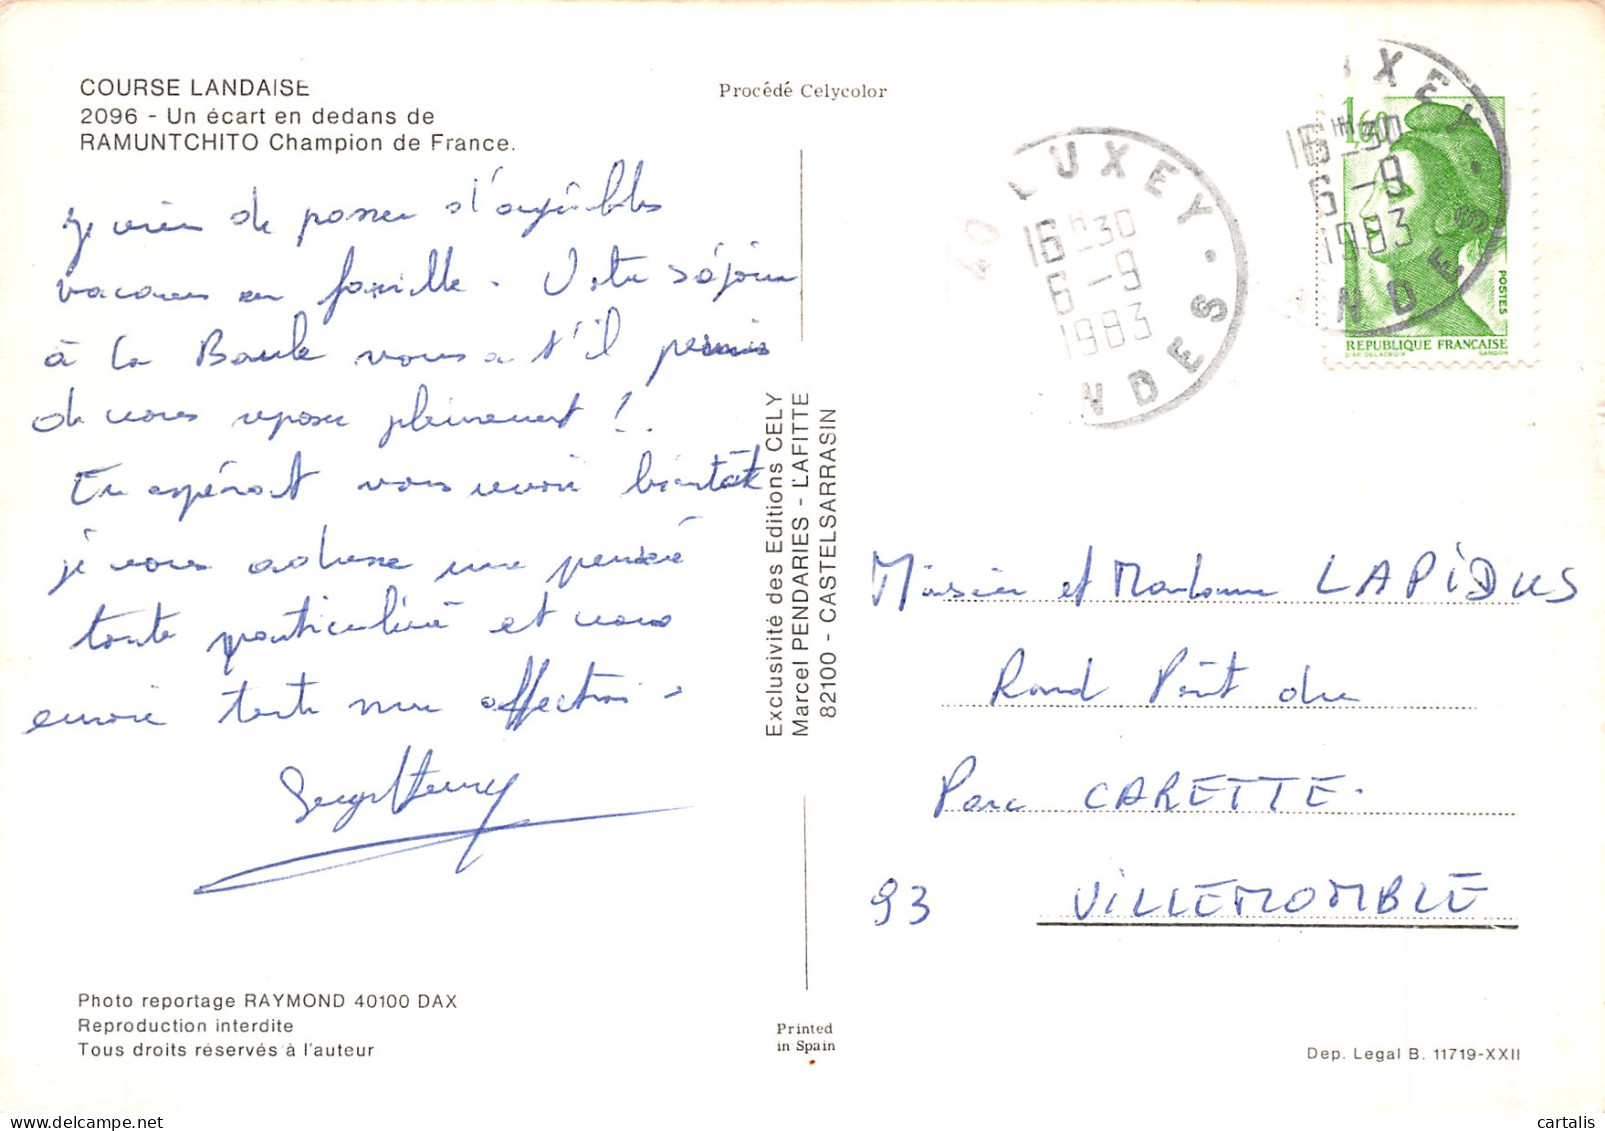 COURSE LANDAISE
2096 - Un écart en dedans de
RAMUNTCHITO Champion de France.
Je viens de passer d'agréables
vacances en famille. Votre séjour
à La Baule vous a t'il permis
de vous reposer pleinement !
En espérant vous revoir bientôt
je vous adresse une pensée
toute particulière et vous
envoie toute mon affection -
Procédé Celycolor
Exclusivité des Editions CELY
Marcel PENDARIES - LAFITTE
82100 - CASTELSARRASIN
40 LUXEY
16H-30
6 -9
1983
LANDES
UXEY
16H-30
6 -9
1983
ANDES
1,60
POSTES
REPUBLIQUE FRANÇAISE
D'AP. DELACROIX GANDON
Monsieur et Madame LAPIDUS
Rond Point du
Parc CARETTE.
93 VILLEMOMBLE
Photo reportage RAYMOND 40100 DAX
Reproduction interdite
Tous droits réservés à l'auteur
Printed
in Spain
Dep. Legal B. 11719-XXII
cartalis